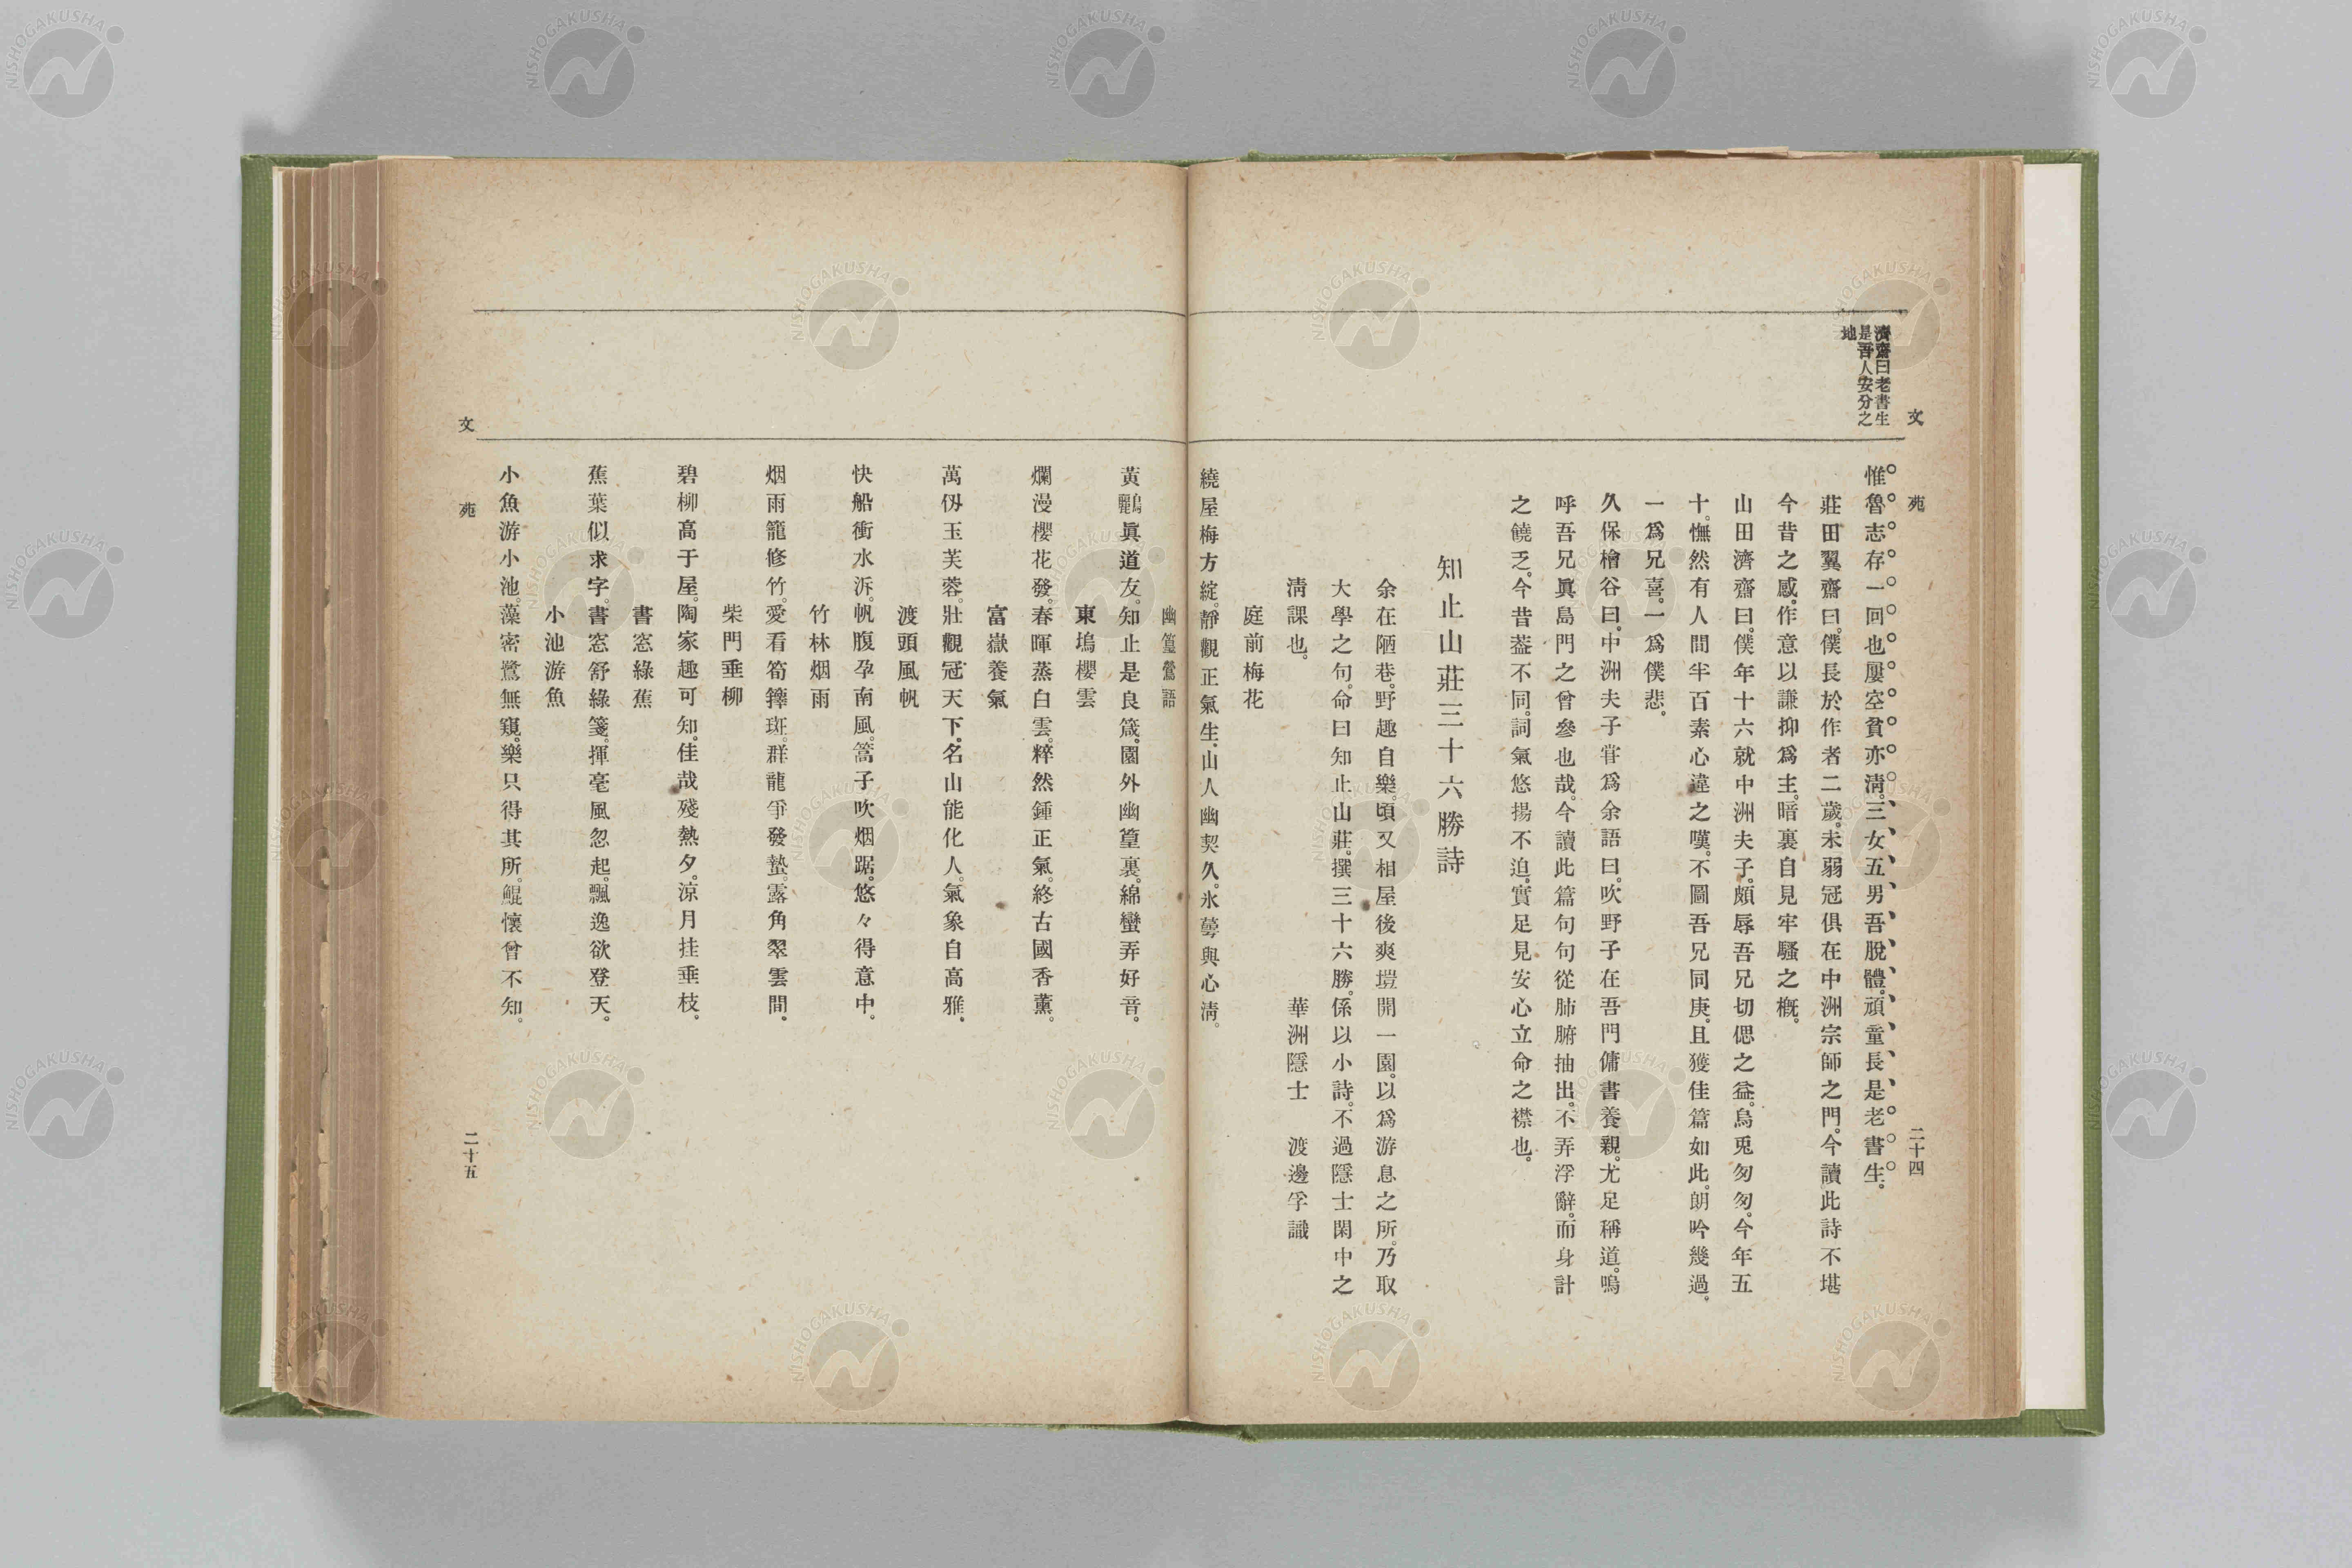 文 苑 二十四
濟齋曰老書生
是吾人安分之
地
惟魯志存一回也屢空貧亦淸。三女五男吾脫體。頑童長是老書生。
莊田翼齋曰。僕長於作者二歲。未弱冠俱在中洲宗師之門。今讀此詩不堪
今昔之感。作意以謙抑爲主。暗裏自見牢騷之槪。
山田濟齋曰。僕年十六就中洲夫子。頗辱吾兄切偲之益。烏兎匆匆。今年五
十。憮然有人間半百素心違之嘆。不圖吾兄同庚。且獲佳篇如此。朗吟幾過。
一爲兄喜。一爲僕悲。
久保檜谷曰。中洲夫子甞爲余語曰。吹野子在吾門傭書養親。尤足稱道。嗚
呼吾兄眞島門之曾參也哉。今讀此篇句句從肺腑抽出。不弄浮辭。而身計
之饒乏。今昔葢不同。詞氣悠揚不迫。實足見安心立命之襟也。
知止山莊三十六勝詩
余在陋巷。野趣自樂。頃又相屋後爽塏開一園。以爲游息之所。乃取
大學之句。命曰知止山莊。撰三十六勝。係以小詩。不過隱士閑中之
淸課也。 華洲隱士 渡邊孚識
庭前梅花
繞屋梅方綻。靜觀正氣生。山人幽契久。氷蕚與心淸。
幽篁鶯語
黃鸝眞道友。知止是良箴。園外幽篁裏。綿蠻弄好音。
東塢櫻雲
爛漫櫻花發。春暉蒸白雲。粹然鍾正氣。終古國香薰。
富嶽養氣
萬仭玉芙蓉。壯觀冠天下。名山能化人。氣象自高雅。
渡頭風帆
快船衝水泝。帆腹孕南風。篙子吹烟踞。悠々得意中。
竹林烟雨
烟雨籠修竹。愛看筍籜斑。群龍爭發蟄。露角翠雲間。
柴門垂柳
碧柳高于屋。陶家趣可知。佳哉殘熱夕。涼月挂垂枝。
書窓綠蕉
蕉葉似求字。書窓舒綠箋。揮毫風忽起。飄逸欲登天。
小池游魚
小魚游小池。藻密鷺無窺。樂只得其所。鯤懷曾不知。
文 苑 二十五